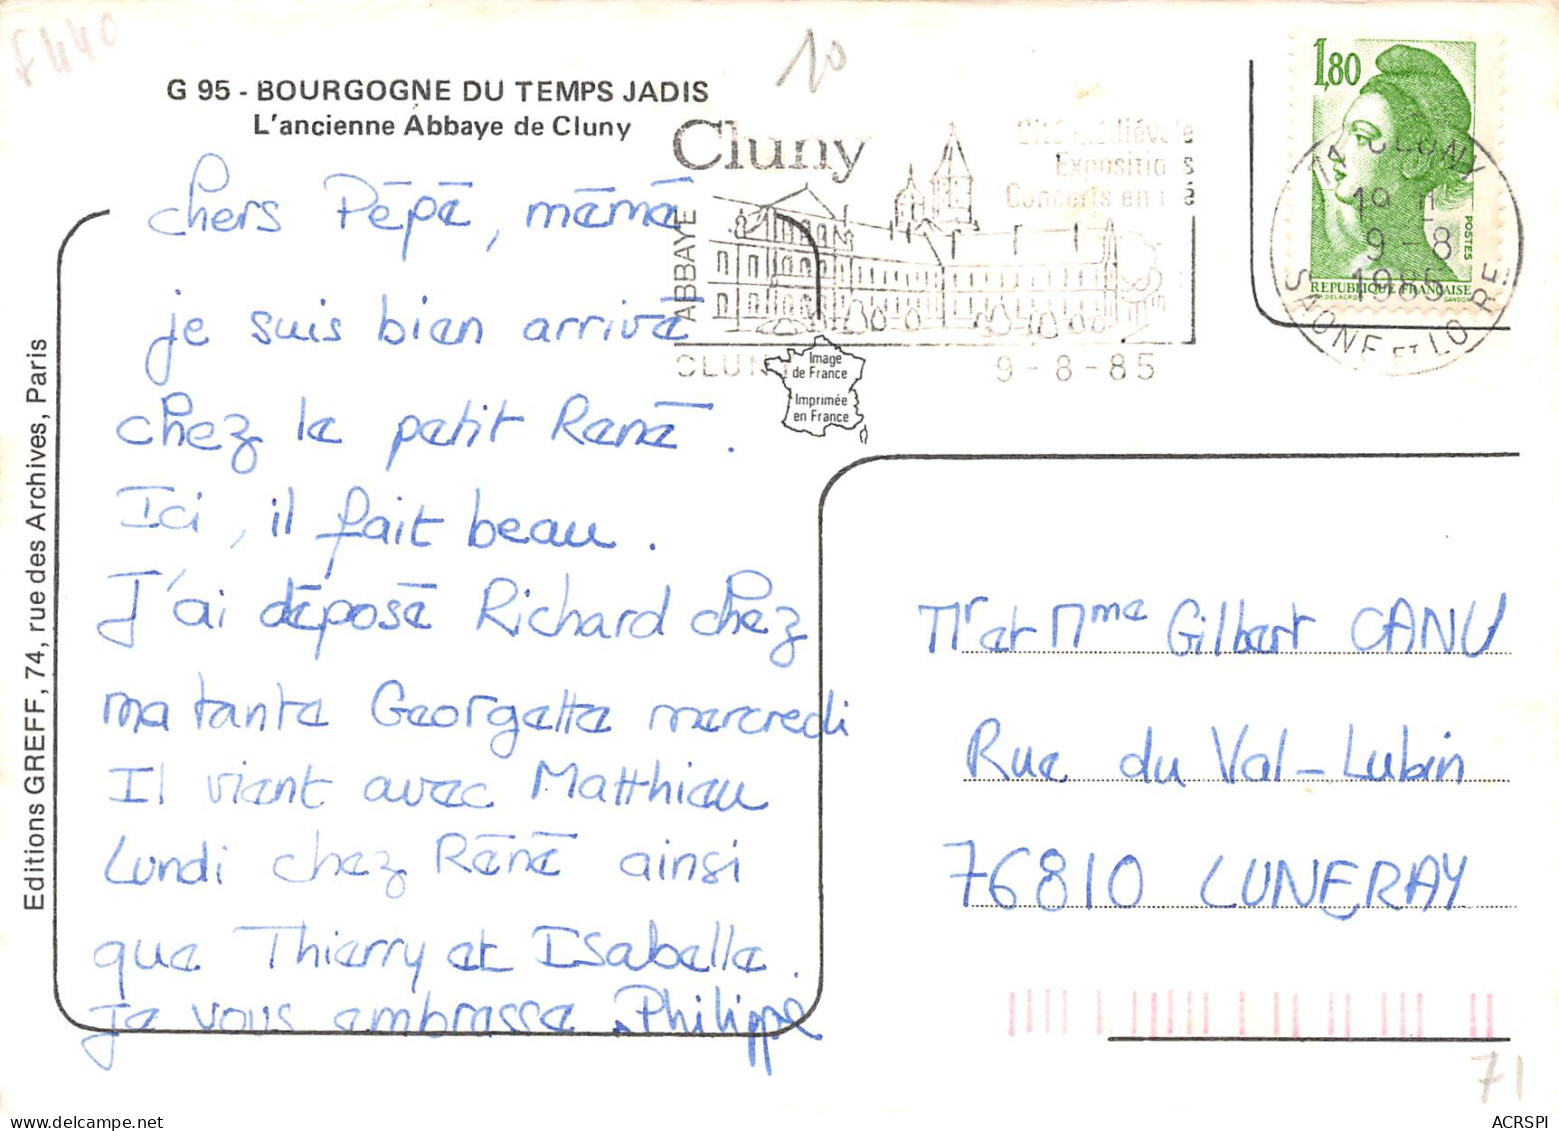 F440
10
G 95 - BOURGOGNE DU TEMPS JADIS
L'ancienne Abbaye de Cluny
chers Pépé, mémé
je suis bien arrivé
chez le petit René.
Ici, il fait beau.
J'ai déposé Richard chez
ma tante Georgette mercredi
Il vient avec Matthieu
Lundi chez Réné ainsi
que Thierry et Isabelle.
je vous embrasse Philippe
Editions GREFF, 74, rue des Archives, Paris
Cluny
ABBAYE
Cité médiévale
Expositions
Concerts en été
CLUNY 9-8-85
Image
de France
Imprimée
en France
1,80
POSTES
REPUBLIQUE FRANÇAISE
DELACROIX GANDON
71 CLUNY
19 H
9-8
1985
SAONE ET LOIRE
Mr et Mme Gilbert CANU
Rue du Val-Lubin
76810 LUNERAY
71
ACRSPI